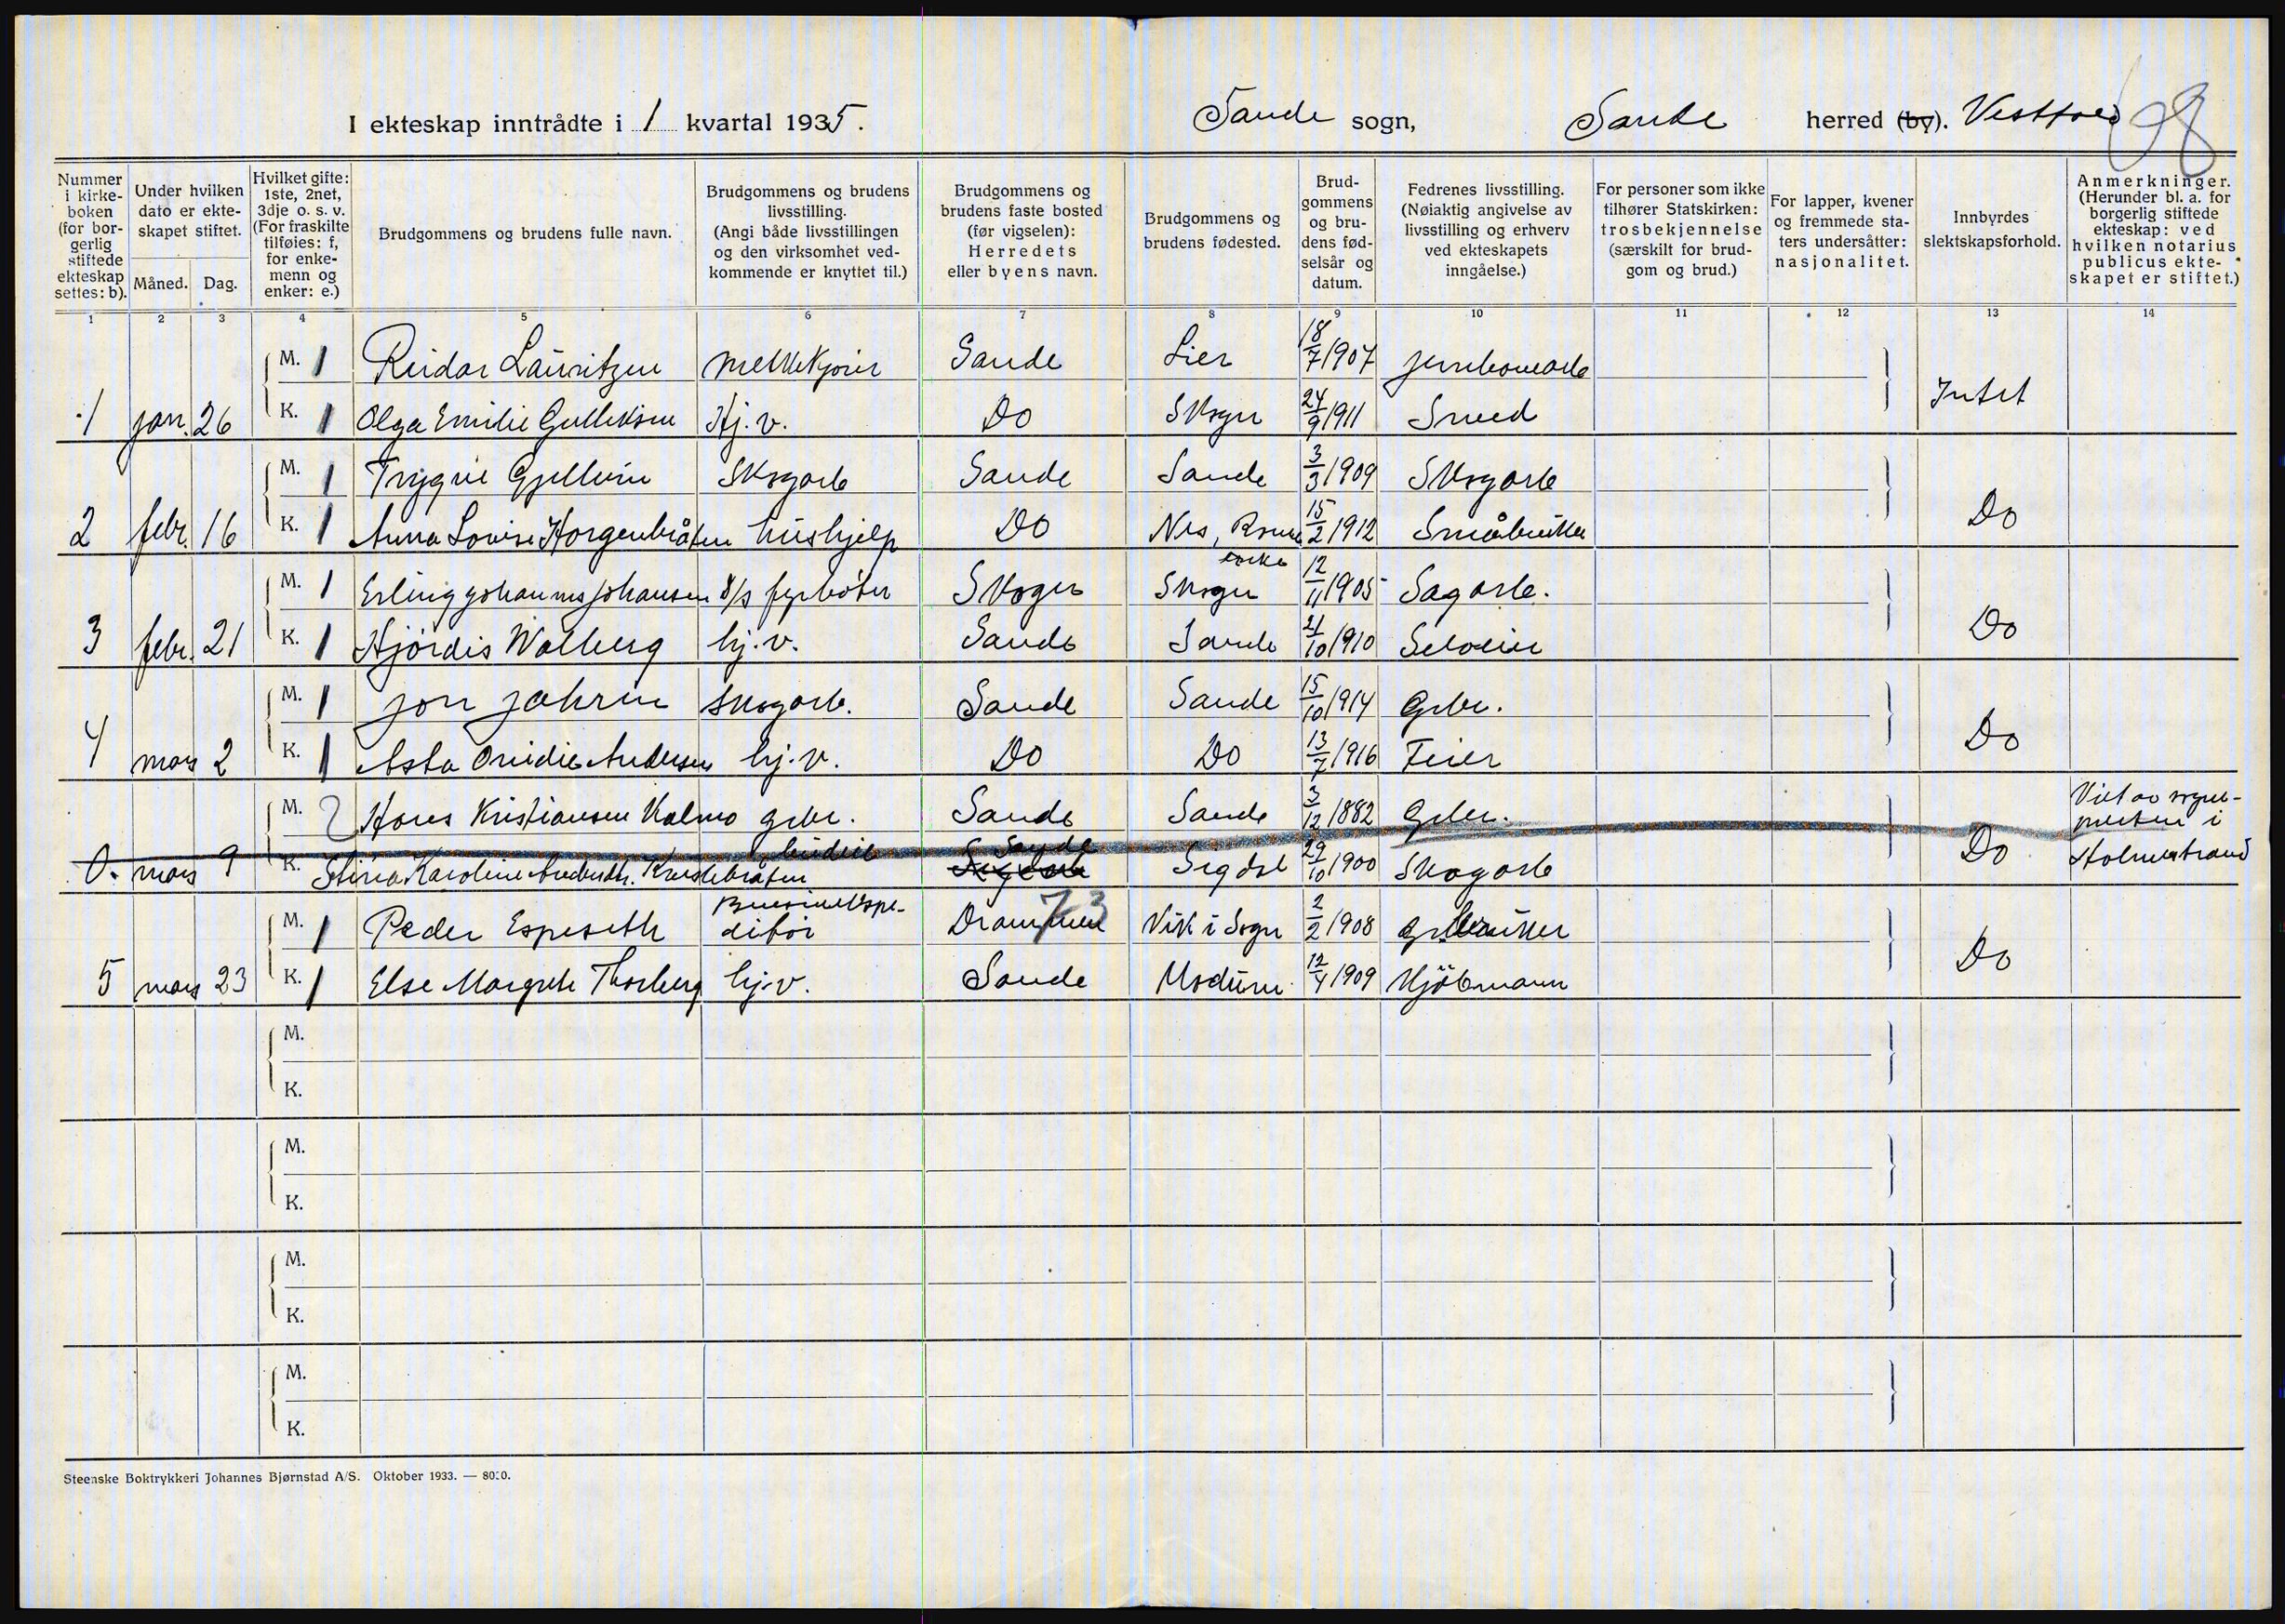 I ekteskap inntrådte i 1 kvartal 1935. Sande sogn, Sande herred (by). Vestfold 98
Nummer i kirke-boken (for bor-gerlig stiftede ekteskap settes: b).
Under hvilken dato er ekte-skapet stiftet.
Måned. Dag.
Hvilket gifte: 1ste, 2net, 3dje o. s. v. (For fraskilte tilføies: f, for enke-menn og enker: e.)
Brudgommens og brudens fulle navn.
Brudgommens og brudens livsstilling. (Angi både livsstillingen og den virksomhet ved-kommende er knyttet til.)
Brudgommens og brudens faste bosted (før vigselen): Herredets eller byens navn.
Brudgommens og brudens fødested.
Brud-gommens og bru-dens fød-selsår og datum.
Fedrenes livsstilling. (Nøiaktig angivelse av livsstilling og erhverv ved ekteskapets inngåelse.)
For personer som ikke tilhører Statskirken: trosbekjennelse (særskilt for brud-gom og brud.)
For lapper, kvener og fremmede sta-ters undersåtter: nasjonalitet.
Innbyrdes slektskapsforhold.
Anmerkninger. (Herunder bl. a. for borgerlig stiftede ekteskap: ved hvilken notarius publicus ekte-skapet er stiftet.)
1 2 3 4 5 6 7 8 9 10 11 12 13 14
M. 1 Reidar Lauritzen melkekjører Sande Lier 18/7 1907 jernbanearb
1 jan. 26 K. 1 Olga Emilie Gulliksen Hj. v. Do Skoger 24/9 1911 Smed Intet
M. 1 Trygve Gjellum Skogarb Sande Sande 3/3 1909 Skogarb
2 febr. 16 K. 1 Anna Lovise Horgenbråten hushjelp Do Nes, Romerike 15/2 1912 Småbruker Do
M. 1 Erling Johannes Johansen d/s fyrbøter Skoger Skoger 12/11 1905 Sagarb.
3 febr. 21 K. 1 Hjørdis Walberg hj. v. Sande Sande 21/10 1910 Seloeier Do
M. 1 Jon Jahren skogarb. Sande Sande 15/10 1914 Grbr.
4 mars 2 K. 1 Asta Ovidie Andersen hj. v. Do Do 13/7 1916 Feier Do
M. 2 Hans Kristiansen Kalmo grbr. Sande Sande 3/12 1882 Grbr. Viet av sogne-
presten i
budeie Sande
0. mars 9 K. Stina Karoline Andersdtr. Sigdal Sigdal 29/10 1900 Skogarb Do Holmestrand
M. 1 Peder Espeseth ditør Drammen 73 Vik i Sogn 2/2 1908 Grbruker
5 mars 23 K. 1 Else Margrete Thorberg hj. v. Sande Modum 12/4 1909 Kjøbmann Do
M.
K.
M.
K.
M.
K.
M.
K.
Steenske Boktrykkeri Johannes Bjørnstad A/S. Oktober 1933. — 8000.